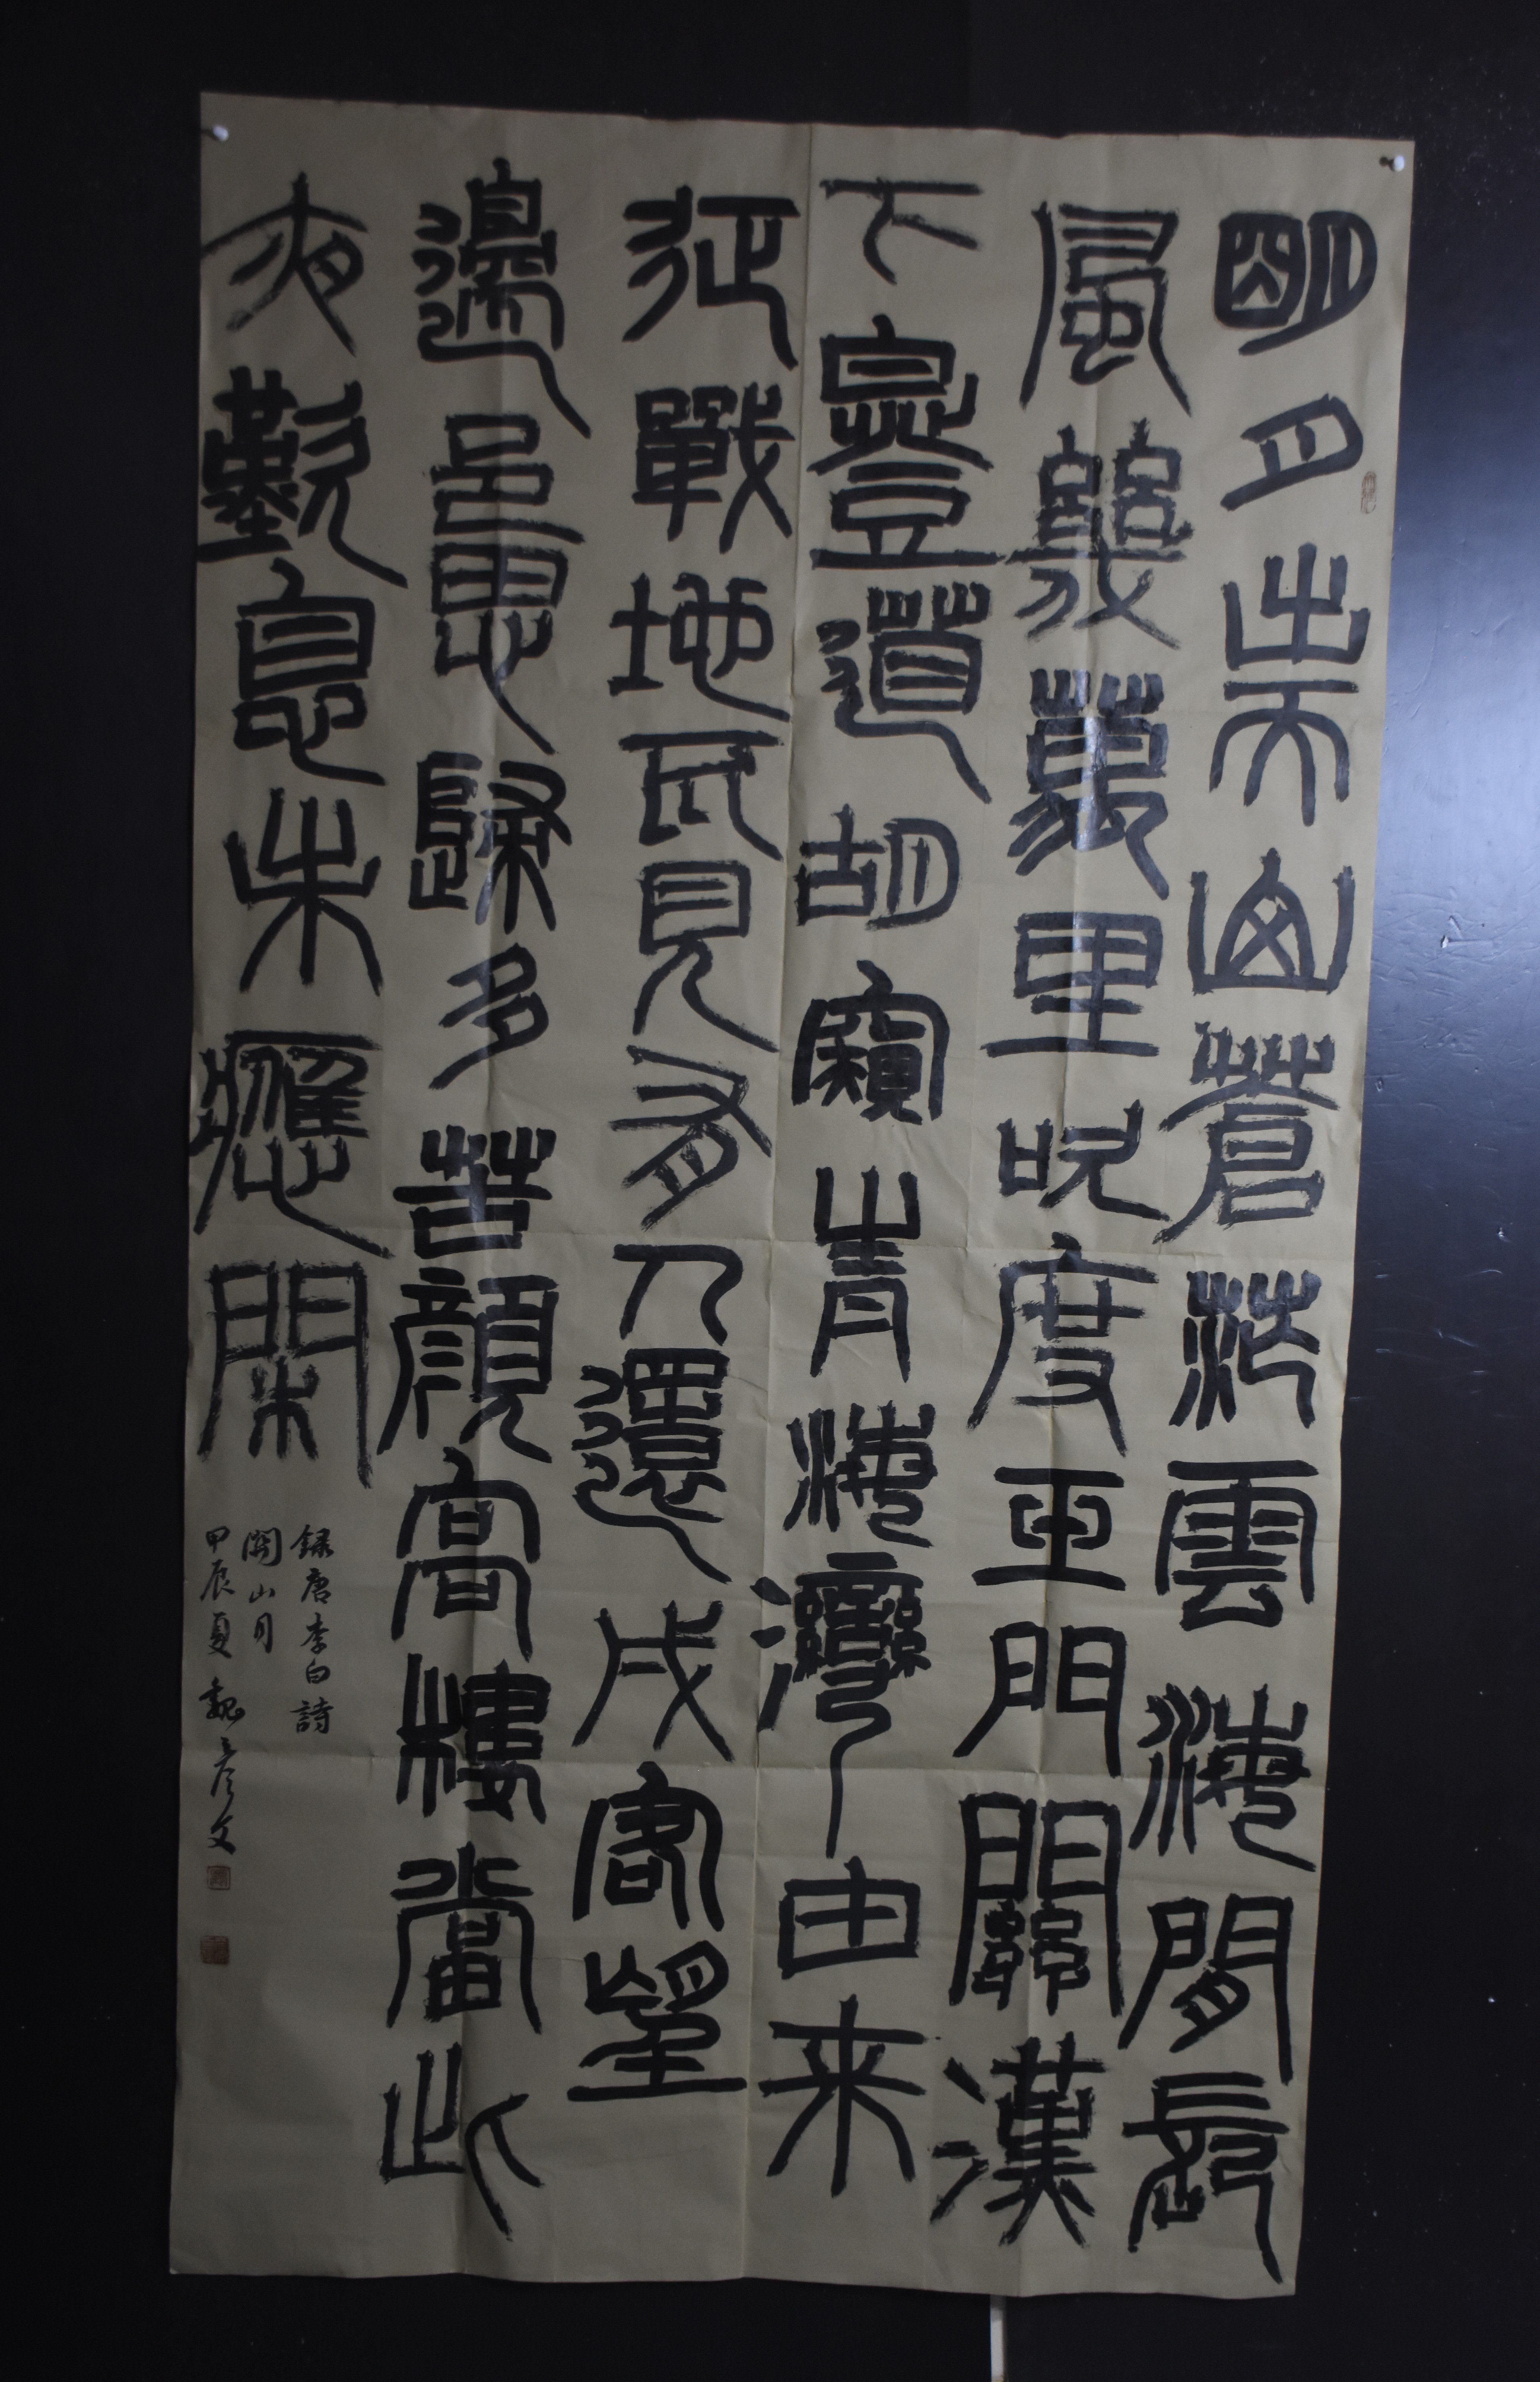 明月出天山蒼茫雲海間長
風幾萬里吹度玉門關漢
下白登道胡窺青海灣由来
征戰地不見有人還戍客望
邊邑思歸多苦顏高樓當此
夜歎息未應閑
録唐李白詩
關山月
甲辰夏 魏彥文